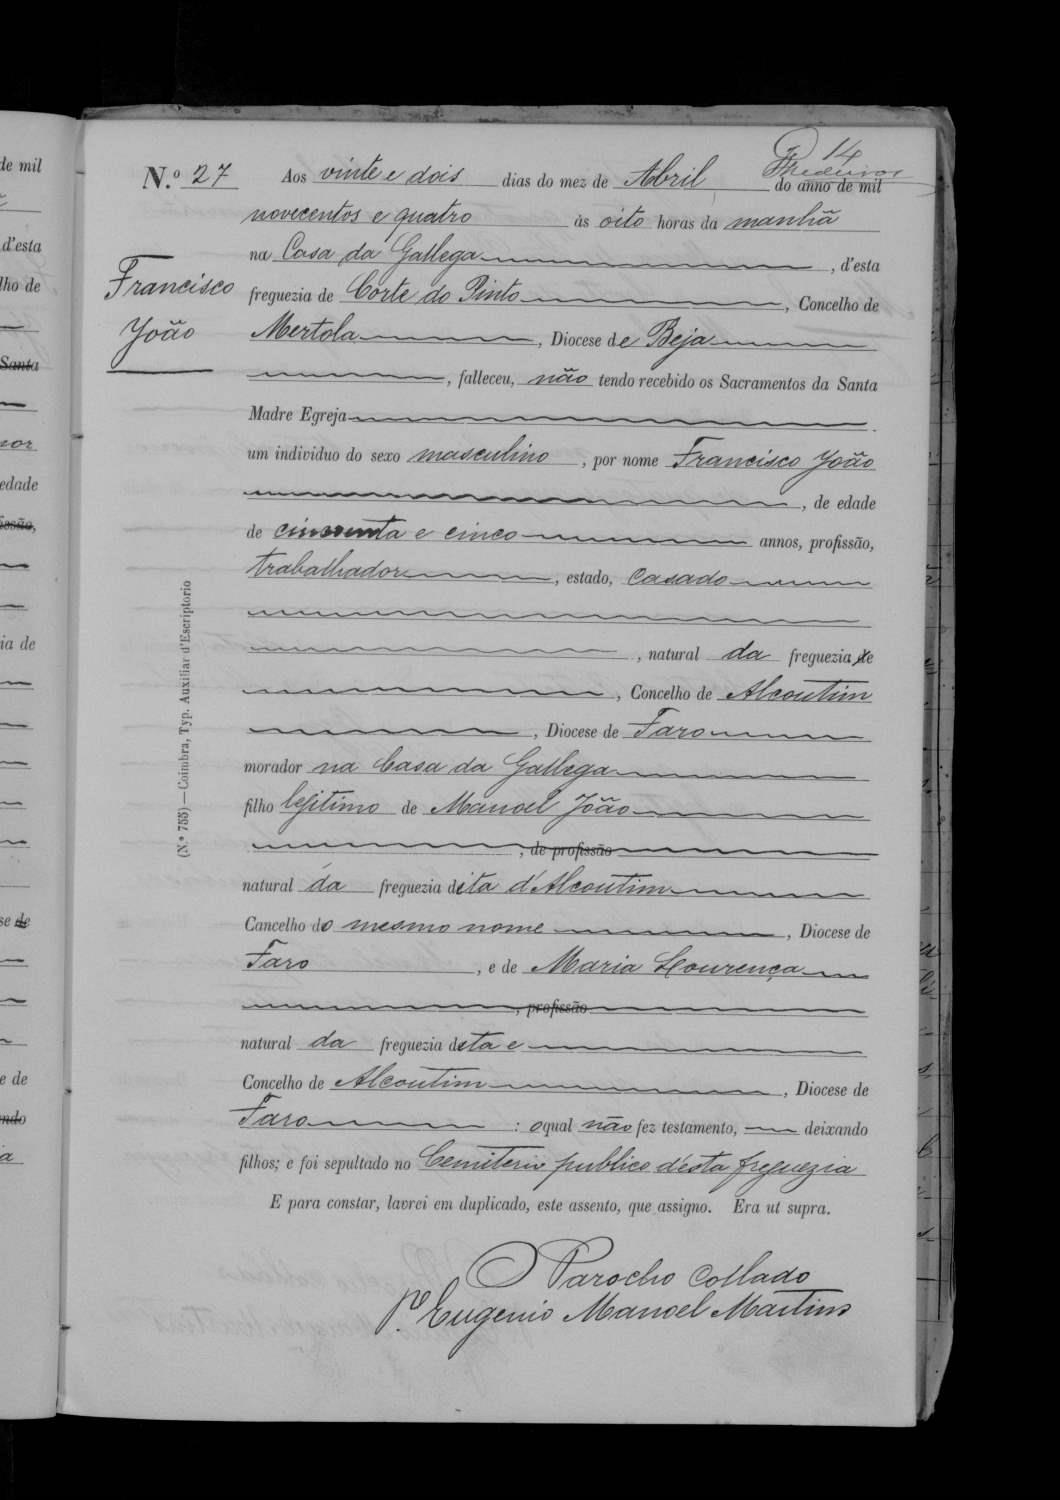 14
N.º 27 Aos vinte e dois dias do mez de Abril do anno de mil
novecentos e quatro às oito horas da manhã
na Casa da Gallega, d'esta
Francisco
João
freguezia de Corte do Pinto, Concelho de
Mertola, Diocese de Beja
, falleceu, não tendo recebido os Sacramentos da Santa
Madre Egreja.
um individuo do sexo masculino, por nome Francisco João
, de edade
de cincoenta e cinco annos, profissão,
trabalhador, estado, casado
, natural da freguezia de
, Concelho de Alcoutim
, Diocese de Faro
morador na Casa da Gallega
filho legitimo de Manoel João
, de profissão
natural da freguezia dita d'Alcoutim
Cancelho do mesmo nome, Diocese de
Faro, e de Maria Lourença
, profissão
natural da freguezia dita e
Concelho de Alcoutim, Diocese de
Faro: o qual não fez testamento, deixando
filhos; e foi sepultado no Cemiterio publico d'esta freguezia
E para constar, lavrei em duplicado, este assento, que assigno. Era ut supra.
O Parocho Collado
P.e Eugenio Manoel Martins
(N.º 755)—Coimbra, Typ. Auxiliar d'Escriptorio
de mil
d'esta
lho de
Santa
nor
edade
issão,
ia de
se de
e de
ndo
a